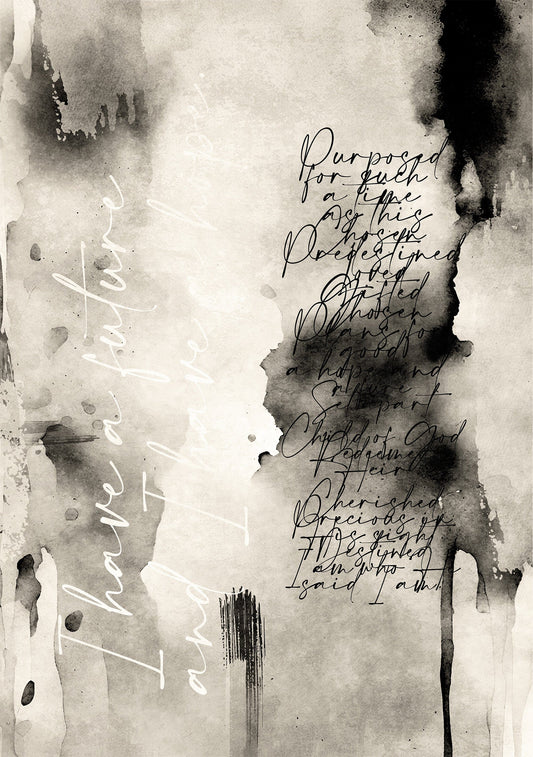 I have a future
and I have a hope.
Purposed
for such
a time
as this
Chosen
Predestined
Loved
Gifted
Chosen
Plans for
good for
a hope and
a future
Set part
Child of God
Redeemed
Heir
Cherished
Precious in
His sight
Destined
I am who
said I am!